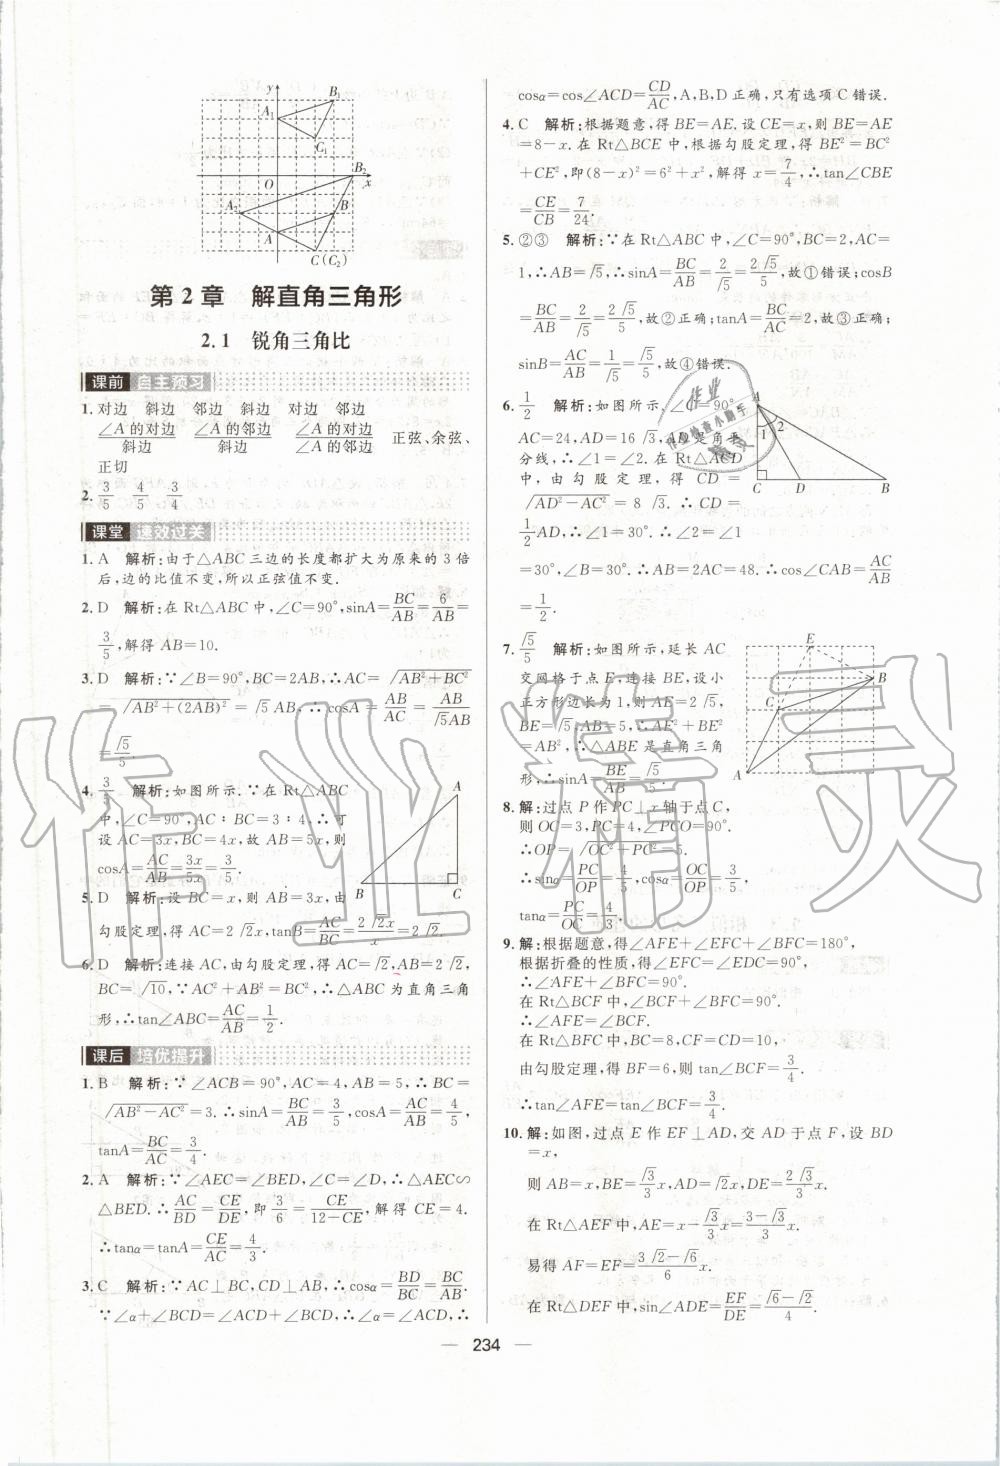 y
B₁
A₁
C₁
O
B₂
x
A₂
B
A
C(C₂)
第2章 解直角三角形
2.1 锐角三角比
课前 自主预习
1. 对边 斜边 邻边 斜边 对边 邻边
∠A的对边/斜边 ∠A的邻边/斜边 ∠A的对边/∠A的邻边 正弦、余弦、
正切
2. 3/5 4/5 3/4
课堂 速效过关
1. A 解析:由于△ABC三边的长度都扩大为原来的3倍
后,边的比值不变,所以正弦值不变.
2. D 解析:在Rt△ABC中,∠C=90°,sinA=BC/AB=6/AB=
3/5,解得AB=10.
3. D 解析:∵∠B=90°,BC=2AB,∴AC=√(AB²+BC²)
=√(AB²+(2AB)²)=√5AB,∴cosA=AB/AC=AB/(√5AB)
=√5/5.
4. 3/5 解析:如图所示.∵在Rt△ABC
中,∠C=90°,AC∶BC=3∶4,∴可
设AC=3x,BC=4x,故AB=5x,则
cosA=AC/AB=3x/5x=3/5.
A
B
C
5. D 解析:设BC=x,则AB=3x,由
勾股定理,得AC=2√2x,tanB=AC/BC=2√2x/x=2√2.
6. D 解析:连接AC,由勾股定理,得AC=√2,AB=2√2,
BC=√10,∵AC²+AB²=BC²,∴△ABC为直角三角
形,∴tan∠ABC=AC/AB=1/2.
课后 培优提升
1. B 解析:∵∠ACB=90°,AC=4,AB=5,∴BC=
√(AB²-AC²)=3.∴sinA=BC/AB=3/5,cosA=AC/AB=4/5,
tanA=BC/AC=3/4.
2. A 解析:∵∠AEC=∠BED,∠C=∠D,∴△AEC∽
△BED.∴AC/BD=CE/DE,即3/6=CE/(12-CE),解得CE=4.
∴tanα=tanA=CE/AC=4/3.
3. C 解析:∵AC⊥BC,CD⊥AB,∴cosα=BD/BC=BC/AB.
∵∠α+∠BCD=∠ACD+∠BCD,∴∠α=∠ACD,∴
cosα=cos∠ACD=CD/AC,A,B,D正确,只有选项C错误.
4. C 解析:根据题意,得BE=AE.设CE=x,则BE=AE
=8-x.在Rt△BCE中,根据勾股定理,得BE²=BC²
+CE²,即(8-x)²=6²+x²,解得x=7/4,∴tan∠CBE
=CE/CB=7/24.
5. ②③ 解析:∵在Rt△ABC中,∠C=90°,BC=2,AC=
1,∴AB=√5,∴sinA=BC/AB=2/√5=2√5/5,故①错误;cosB
=BC/AB=2/√5=2√5/5,故②正确;tanA=BC/AC=2,故③正确;
sinB=AC/AB=1/√5=√5/5,故④错误.
6. 1/2 解析:如图所示,∠C=90°,
AC=24,AD=16√3,AD是角平
分线,∴∠1=∠2.在Rt△ACD
中,由勾股定理,得CD=
√(AD²-AC²)=8√3.∴CD=
1/2AD,∴∠1=30°.∴∠2=∠1
=30°,∴∠B=30°,∴AB=2AC=48.∴cos∠CAB=AC/AB
=1/2.
A
1
2
C
D
B
7. √5/5 解析:如图所示,延长AC
交网格于点E,连接BE,设小
正方形边长为1,则AE=2√5,
BE=√5,AB=5,∴AE²+BE²
=AB²,∴△ABE是直角三角
形,∴sinA=BE/AB=√5/5.
E
B
C
A
8. 解:过点P作PC⊥x轴于点C,
则OC=3,PC=4,∠PCO=90°.
∴OP=√(OC²+PC²)=5.
∴sinα=PC/OP=4/5,cosα=OC/OP=3/5,
tanα=PC/OC=4/3.
9. 解:根据题意,得∠AFE+∠EFC+∠BFC=180°,
根据折叠的性质,得∠EFC=∠EDC=90°,
∴∠AFE+∠BFC=90°.
在Rt△BCF中,∠BCF+∠BFC=90°,
∴∠AFE=∠BCF.
在Rt△BFC中,BC=8,CF=CD=10,
由勾股定理,得BF=6,则tan∠BCF=3/4.
∴tan∠AFE=tan∠BCF=3/4.
10. 解:如图,过点E作EF⊥AD,交AD于点F,设BD
=x,
则AB=x,BE=√3/3x,AD=√2x,DE=2√3/3x,
在Rt△AEF中,AE=x-√3/3x=(3-√3)/3x,
易得AF=EF=(3√2-√6)/6x.
在Rt△DEF中,sin∠ADE=EF/DE=(√6-√2)/4.
— 234 —
作业精灵